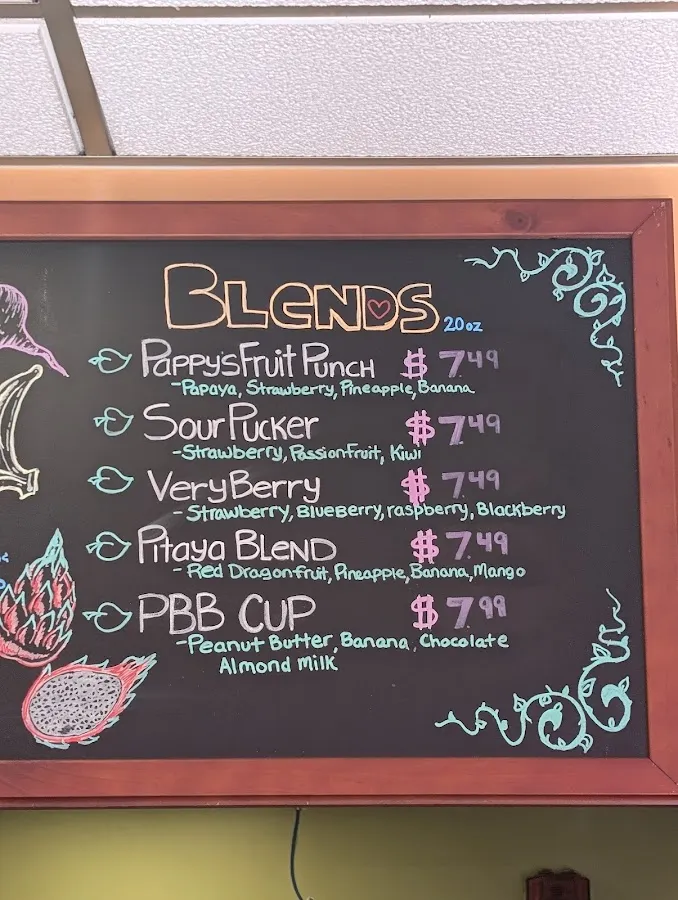 BLENDS 20oz
Pappy's Fruit Punch $7.49
-Papaya, Strawberry, Pineapple, Banana
Sour Pucker $7.49
-Strawberry, Passionfruit, Kiwi
Very Berry $7.49
- Strawberry, Blueberry, raspberry, Blackberry
Pitaya Blend $7.49
- Red Dragonfruit, Pineapple, Banana, Mango
PBB CUP $7.99
-Peanut Butter, Banana, Chocolate
Almond Milk